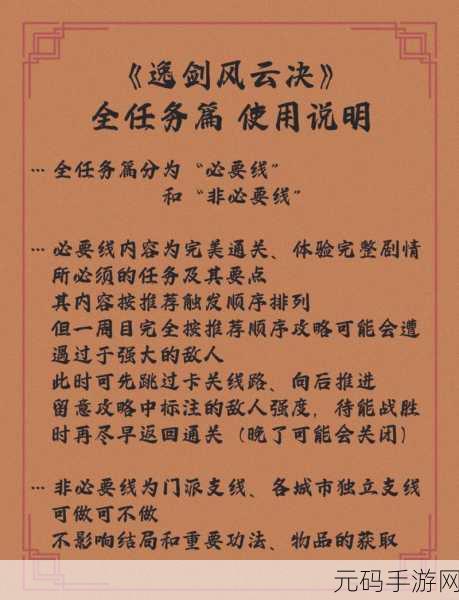 《逸剑风云决》
全任务篇 使用说明
… 全任务篇分为“必要线”
和“非必要线”
… 必要线内容为完美通关、体验完整剧情
所必须的任务及其要点
其内容按推荐触发顺序排列
但一周目完全按推荐顺序攻略可能会遭
遇过于强大的敌人
此时可先跳过卡关线路、向后推进
留意攻略中标注的敌人强度，待能战胜
时再尽早返回通关（晚了可能会关闭）
… 非必要线为门派支线、各城市独立支线
可做可不做
不影响结局和重要功法、物品的获取
元码手游网